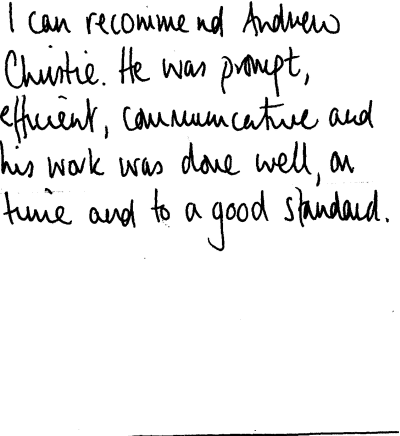 I can recommend Andrew
Christie. He was prompt,
efficient, communicative and
his work was done well, on
time and to a good standard.